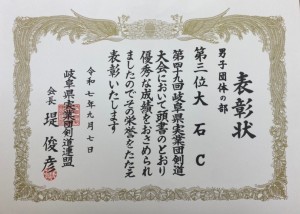 表彰状
男子団体の部
第三位 大石 C
第四十九回岐阜県実業団剣道
大会において頭書のとおり
優秀な成績をおさめられ
ましたのでその栄誉をたたえ
表彰いたします
令和七年九月七日
岐阜県実業団剣道連盟
会長 堤俊彦